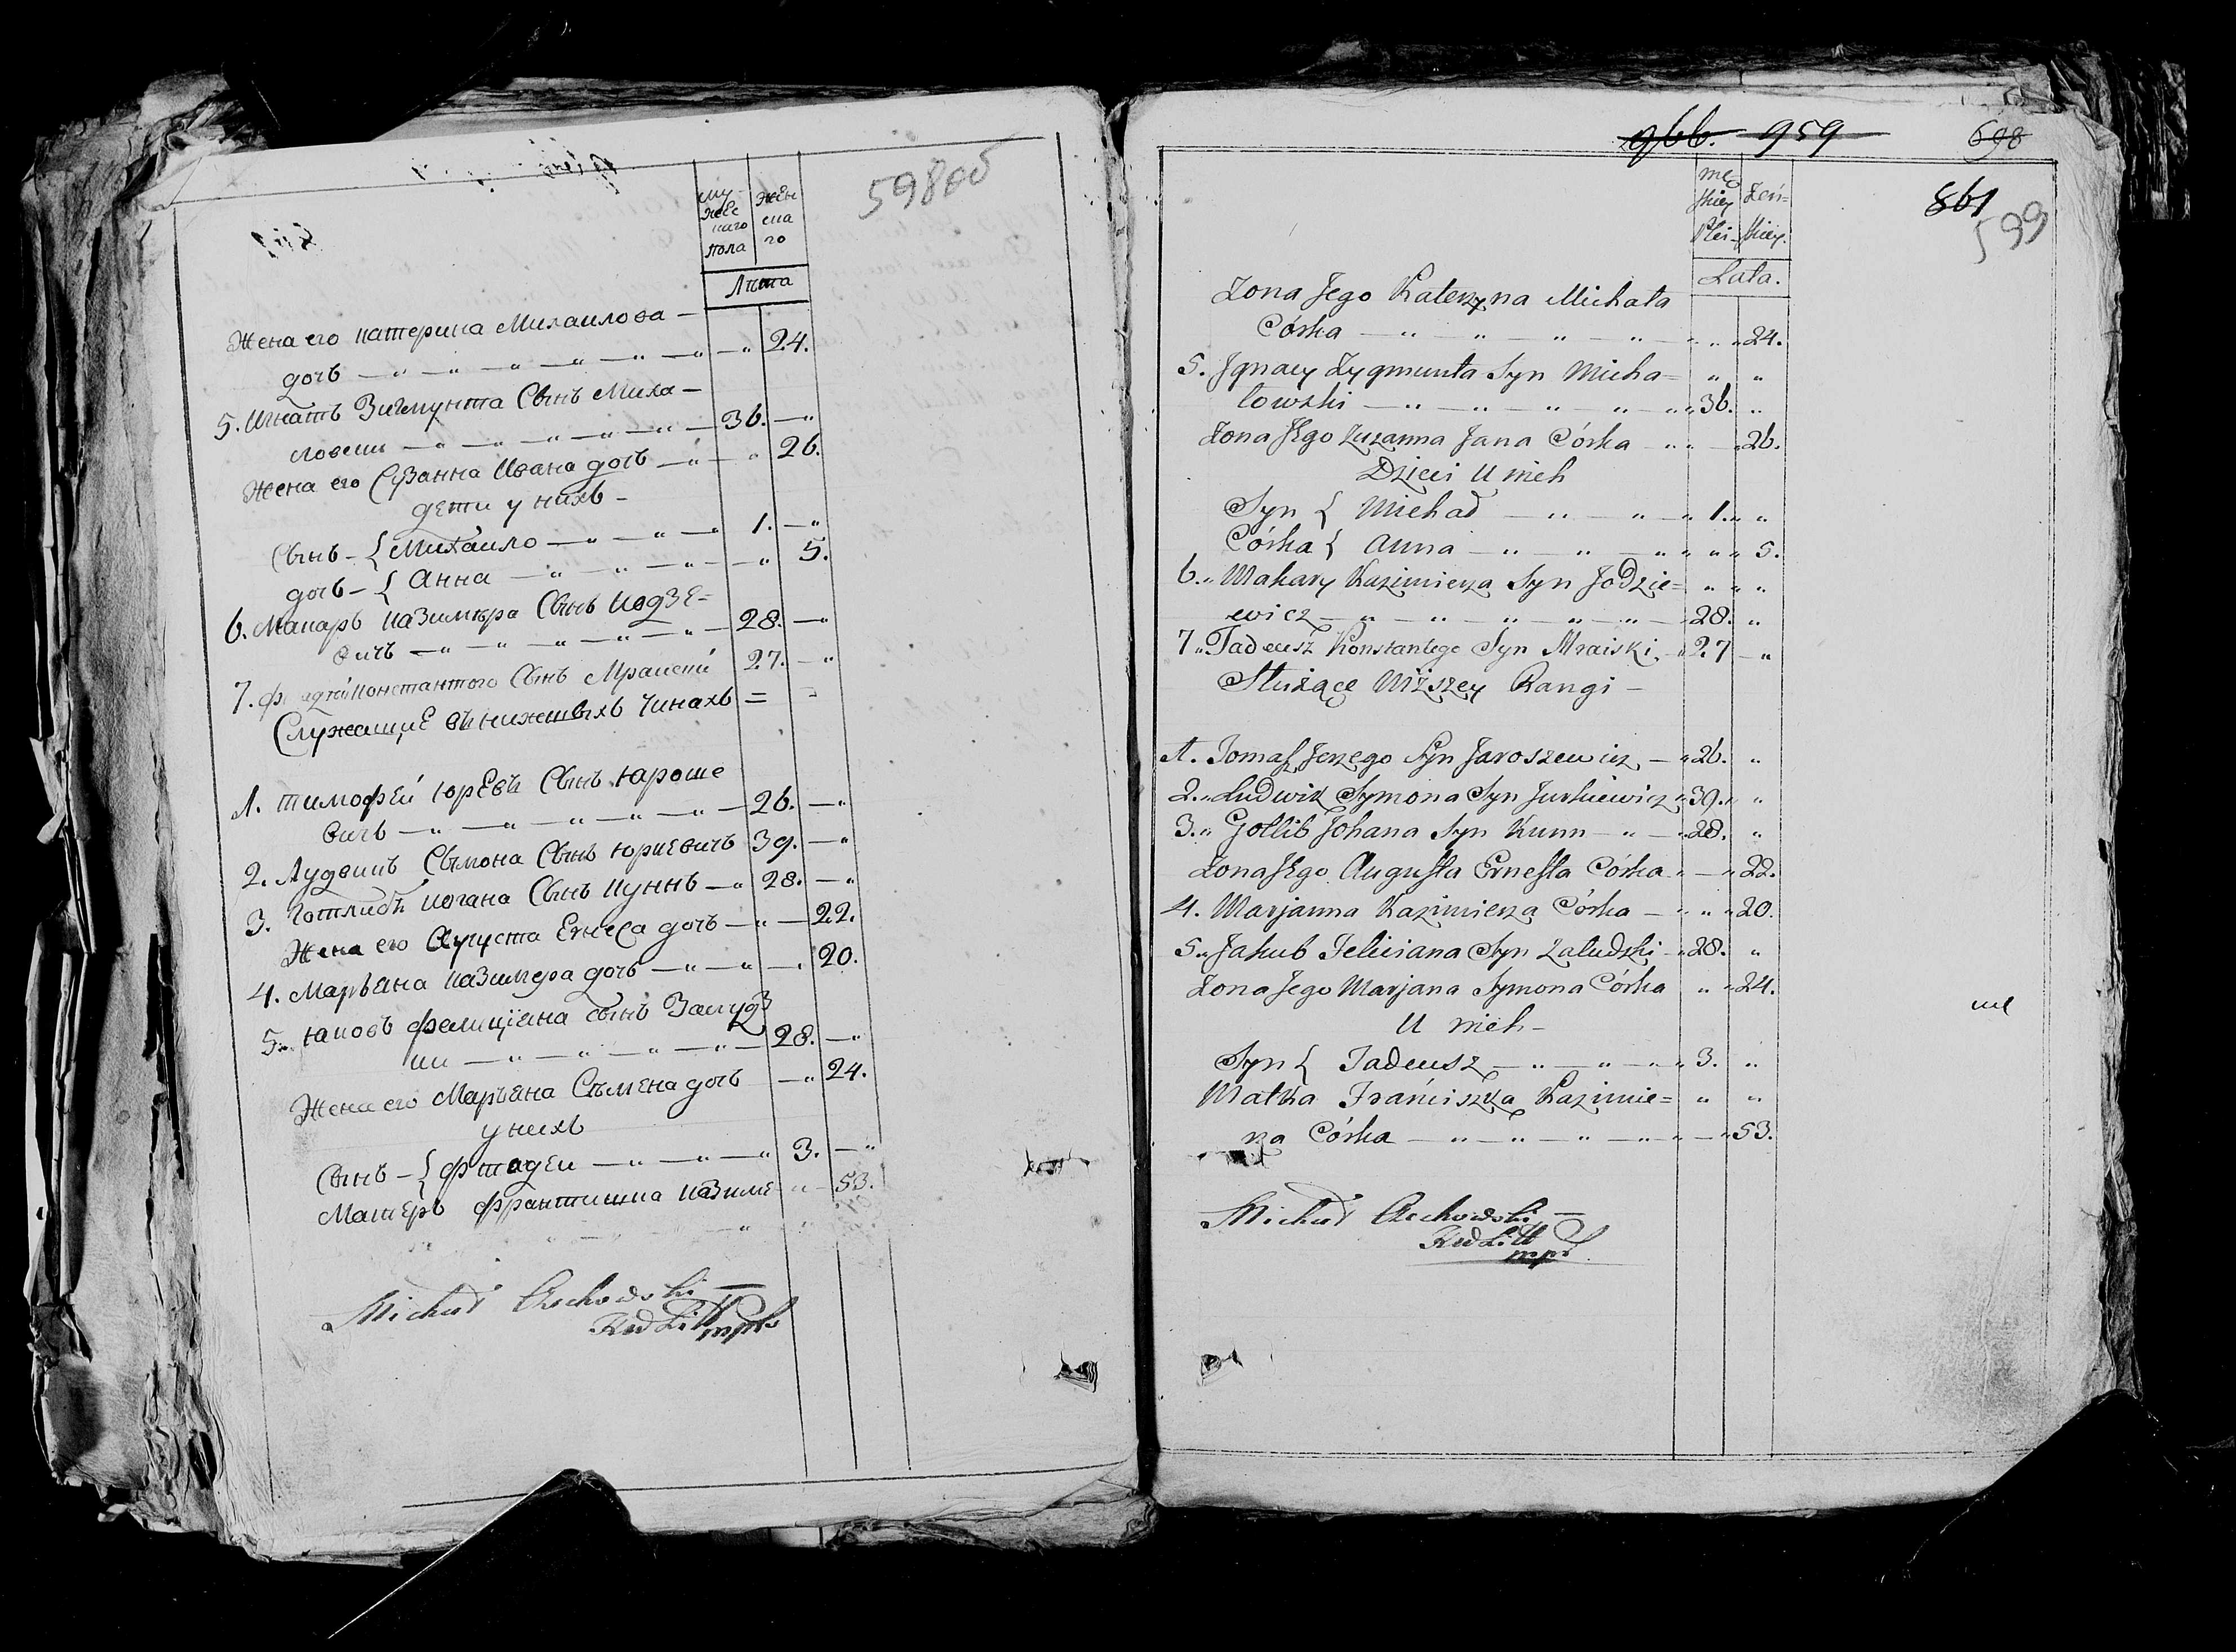 598 об
Му-
жес
каго
пола
жен
ска
го
Лѣта
Жена его Катерина Михаилова —
дочъ — „ — „ — „ — „ — „ — „ 24.
5. Игнатъ Зигмунта Сынъ Миха —
ловски — „ — „ — „ — „ — „ — 36. — „
Жена его Сузанна Ивана дочъ — „ — „ 26.
дети у нихъ —
Сынъ — { Михаило — „ — „ — „ 1. — „
дочъ — { Анна — „ — „ — „ — „ 5.
6. Макаръ Казимѣра Сынъ Иодзе=
вичъ — „ — „ — „ — „ — „ — 28. — „
7. Фадей Константого Сынъ Мраиски 27. — „
Служащие въ нижешыхъ Чинахъ = =
1. Тимофей Юревъ Сынъ Яроше
вичъ — „ — „ — „ — „ — „ — 26. — „
2. Лудвикъ Сымона Сынъ Юркевичъ 39. — „
3. Готлибъ Иогана Сынъ Куннъ — „ 28. — „
Жена его Августа Ернеса дочъ — „ — 22.
4. Маръяна Казимера дочъ — „ — „ — „ 20.
5. Яковъ Фелиціана сынъ Залудз
ки — „ — „ — „ — „ — „ — 28. — „
Жена его Маръяна Сымена дочъ — „ 24.
у нихъ
Сынъ — { Фтадеи — „ — „ — „ 3. — „
Матеръ Франтишка Казиме „ — 53.
Michał
mp
966. 959
698
861
599
męskiey
Płci
żeń=
skiey.
Lata.
Żona Jego Katerzyna Michała
Córka — „ — „ — „ — „ — „ „ „ 24.
5. Jgnacy Zygmunta Syn Micha= „ „
lowski — „ — „ — „ — „ — „ 36. „
Żona Jego Zuzanna Jana Córka — „ „ — 26.
Dzieci U nich
Syn { Michał — „ — „ — „ 1. „ „
Córka { Anna — „ — „ — „ „ „ „ 5.
6. „ Makary Kazimierza Syn Jodzie= „ „ „
ewicz — „ — „ — „ — „ — „ — 28. „
7. „ Tadeusz Konstantego Syn Mraiski — „ 27 — „
Służące Niższey Rangi —
1. Tomasz Jerzego Syn Jaroszewicz — „ 26. „
2. „ Ludwik Symona Syn Jurkiewicz „ 39. „ „
3. „ Gottlib Johana Syn Kunn — „ — „ 28. „
Żona Jego Augusta Ernesta Córka „ — „ 22.
4. Marjanna Kazimierza Córka — „ „ „ 20.
5. „ Jakub Feliciana Syn Zaludzki — „ 28. „
Żona Jego Marjana Symona Córka „ „ 24.
U nich —
Syn { Tadeusz — „ — „ — „ „ 3. „
Matka Franciszka Kazimie= „ „
rza Córka — „ — „ — „ — „ „ — „ 53.
Michał
mp